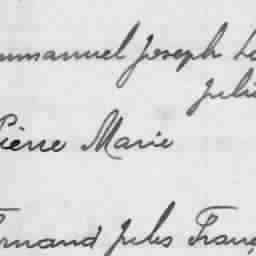 mmanuel Joseph Lo
Juli
Pierre Marie
ernand Jules Franç